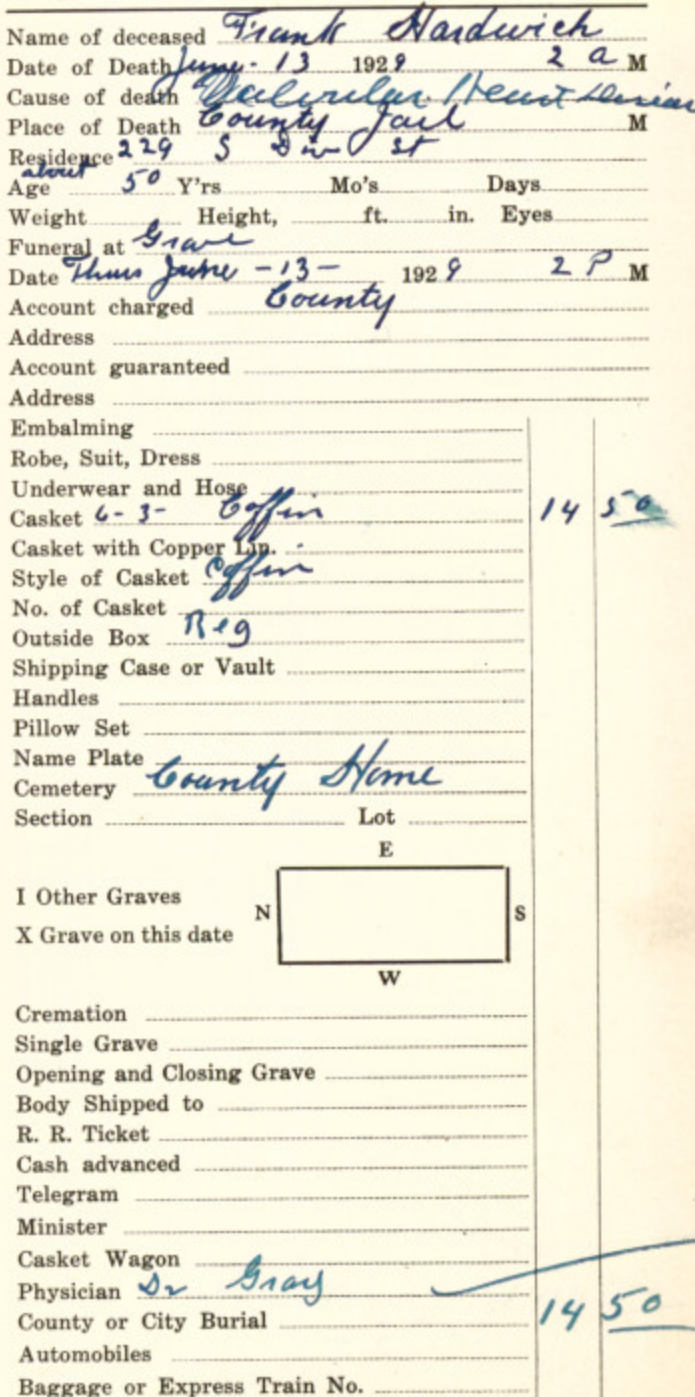 Name of deceased Frank Hardwich
Date of Death June - 13 1929 2 a M
Cause of death Valvular Heart Disease
Place of Death County Jail M
Residence 229 S Div St
about
Age 50 Y'rs Mo's Days
Weight Height, ft. in. Eyes
Funeral at Grave
Date Thurs June -13- 1929 2 P M
Account charged County
Address
Account guaranteed
Address
Embalming
Robe, Suit, Dress
Underwear and Hose
Casket 6-3- Coffin 14 50
Casket with Copper Lin.
Style of Casket Coffin
No. of Casket
Outside Box Reg
Shipping Case or Vault
Handles
Pillow Set
Name Plate
Cemetery County Home
Section Lot
E
I Other Graves
N S
X Grave on this date
W
Cremation
Single Grave
Opening and Closing Grave
Body Shipped to
R. R. Ticket
Cash advanced
Telegram
Minister
Casket Wagon
Physician Dr Gray
County or City Burial 14 50
Automobiles
Baggage or Express Train No.